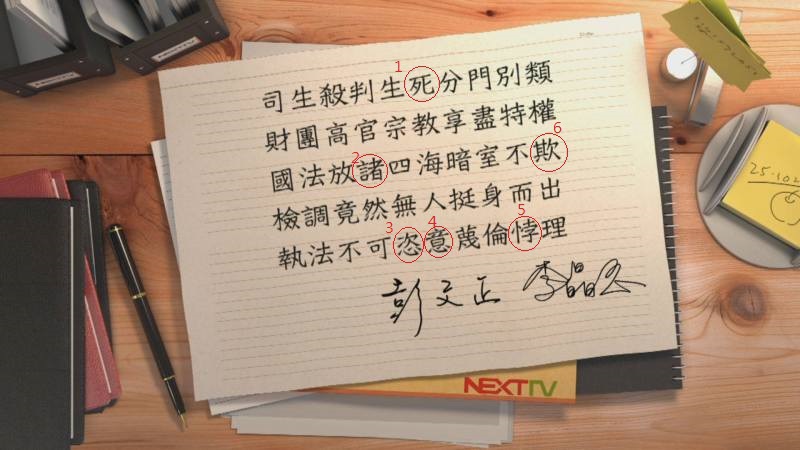 司生殺判生死分門別類
財團高官宗教享盡特權
國法放諸四海暗室不欺
檢調竟然無人挺身而出
執法不可恣意蔑倫悖理
彭文正 李晶玉
NEXTTV
25.102
1
2
3
4
5
6